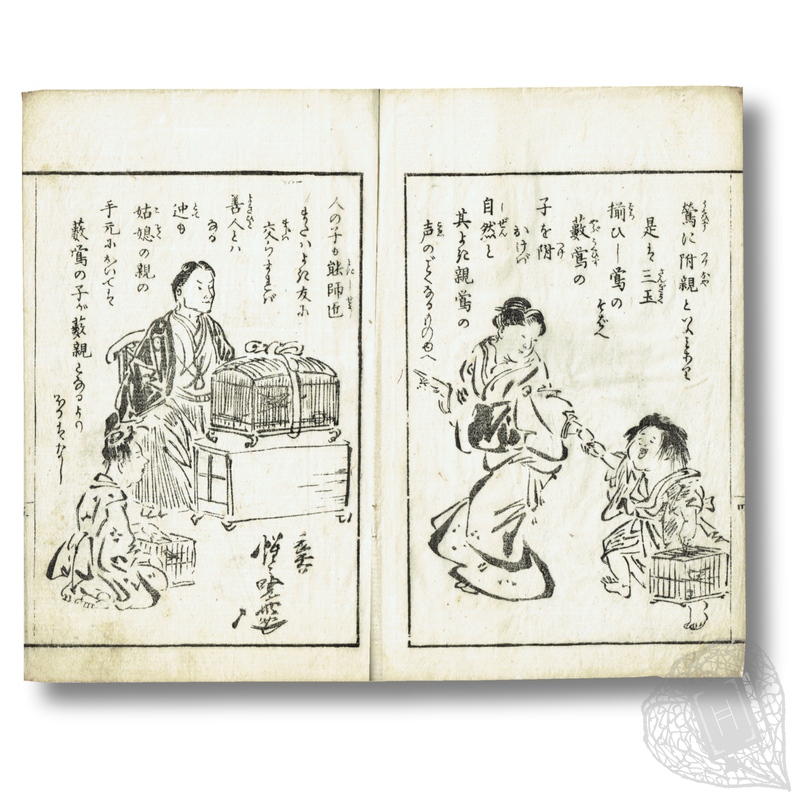 鶯に附親といふことあり
是は三玉
揃ひし鶯の
そばへ
藪鶯の
子を附
おけバ
自然と
其よき親鶯の
声のごとくなるものゆへ
人の子も能師匠
またハよき友に
交らすれバ
善人とハ
なる
迚も
姑媳の親の
手元においてハ
藪鶯の子が藪親となるより